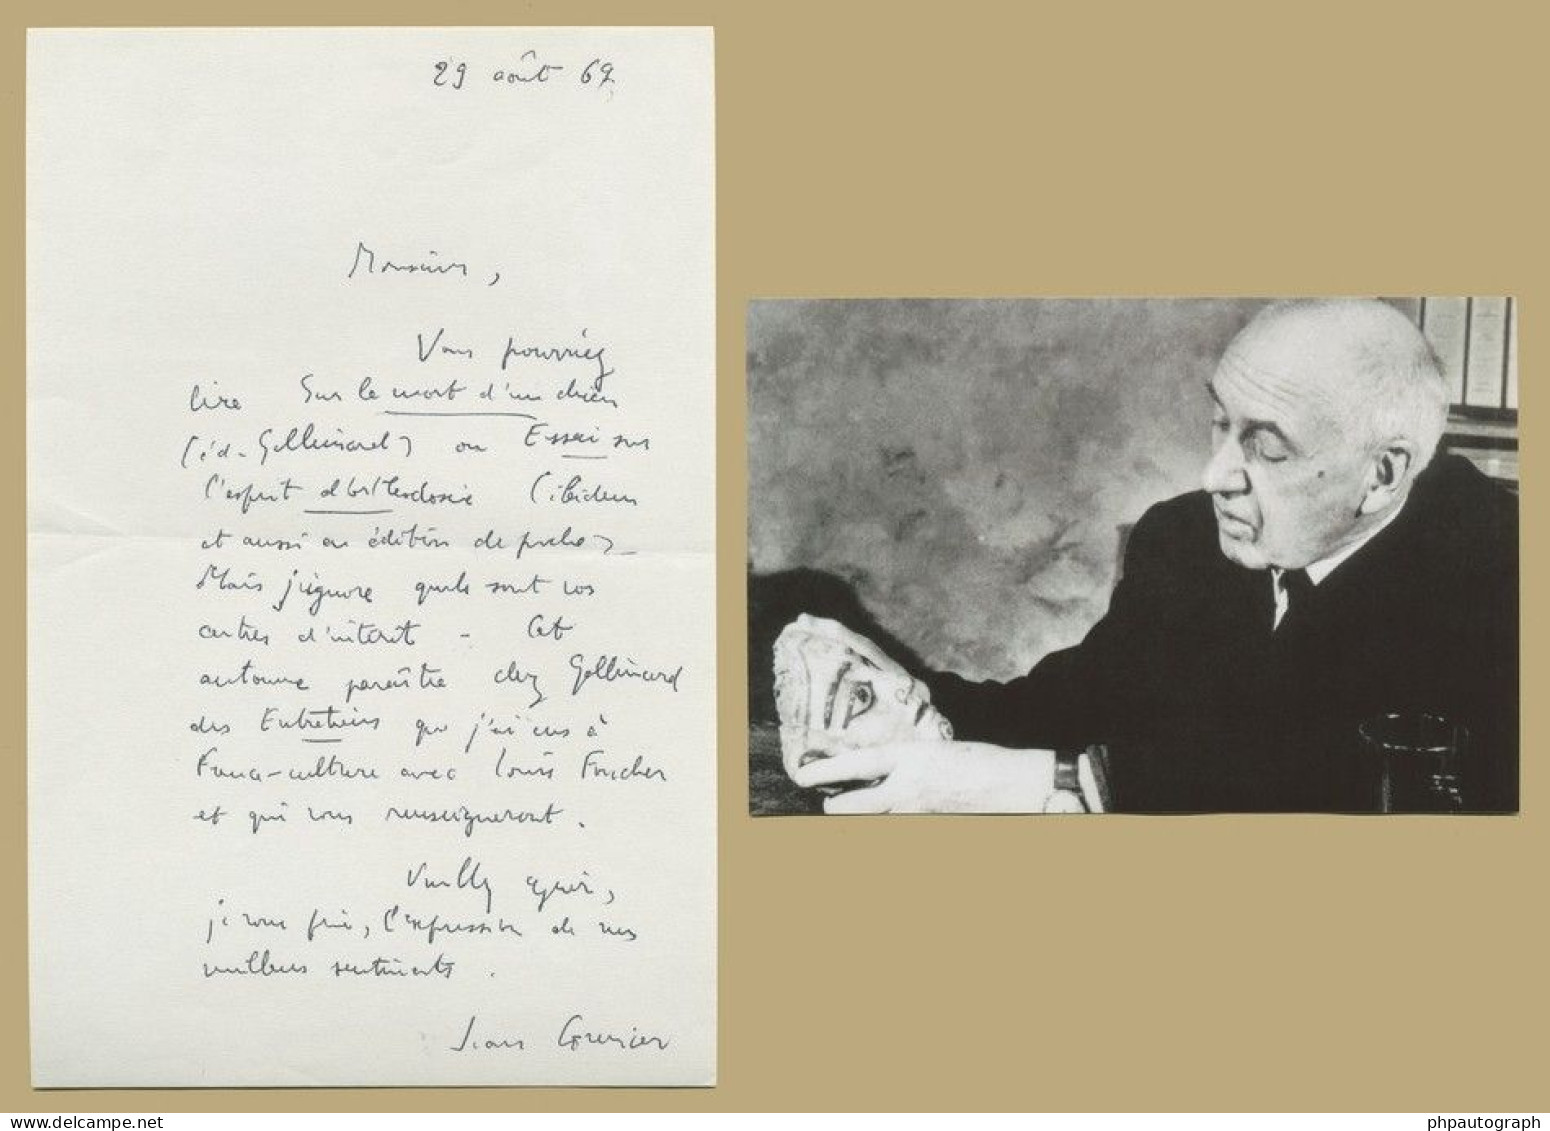 29 août 69.
Monsieur,
Vous pourriez
lire Sur la mort d'un chien
(éd. Gallimard) ou Essai sur
l'esprit d'orthodoxie (ibidem
et aussi en édition de poche) -
Mais j'ignore quels sont vos
centres d'intérêt - Cet
automne paraître chez Gallimard
des Entretiens que j'ai eus à
France-culture avec Louis Foucher
et qui vous renseigneront.
Veuillez agréer,
je vous prie, l'expression de mes
meilleurs sentiments.
Jean Grenier
phpautograph